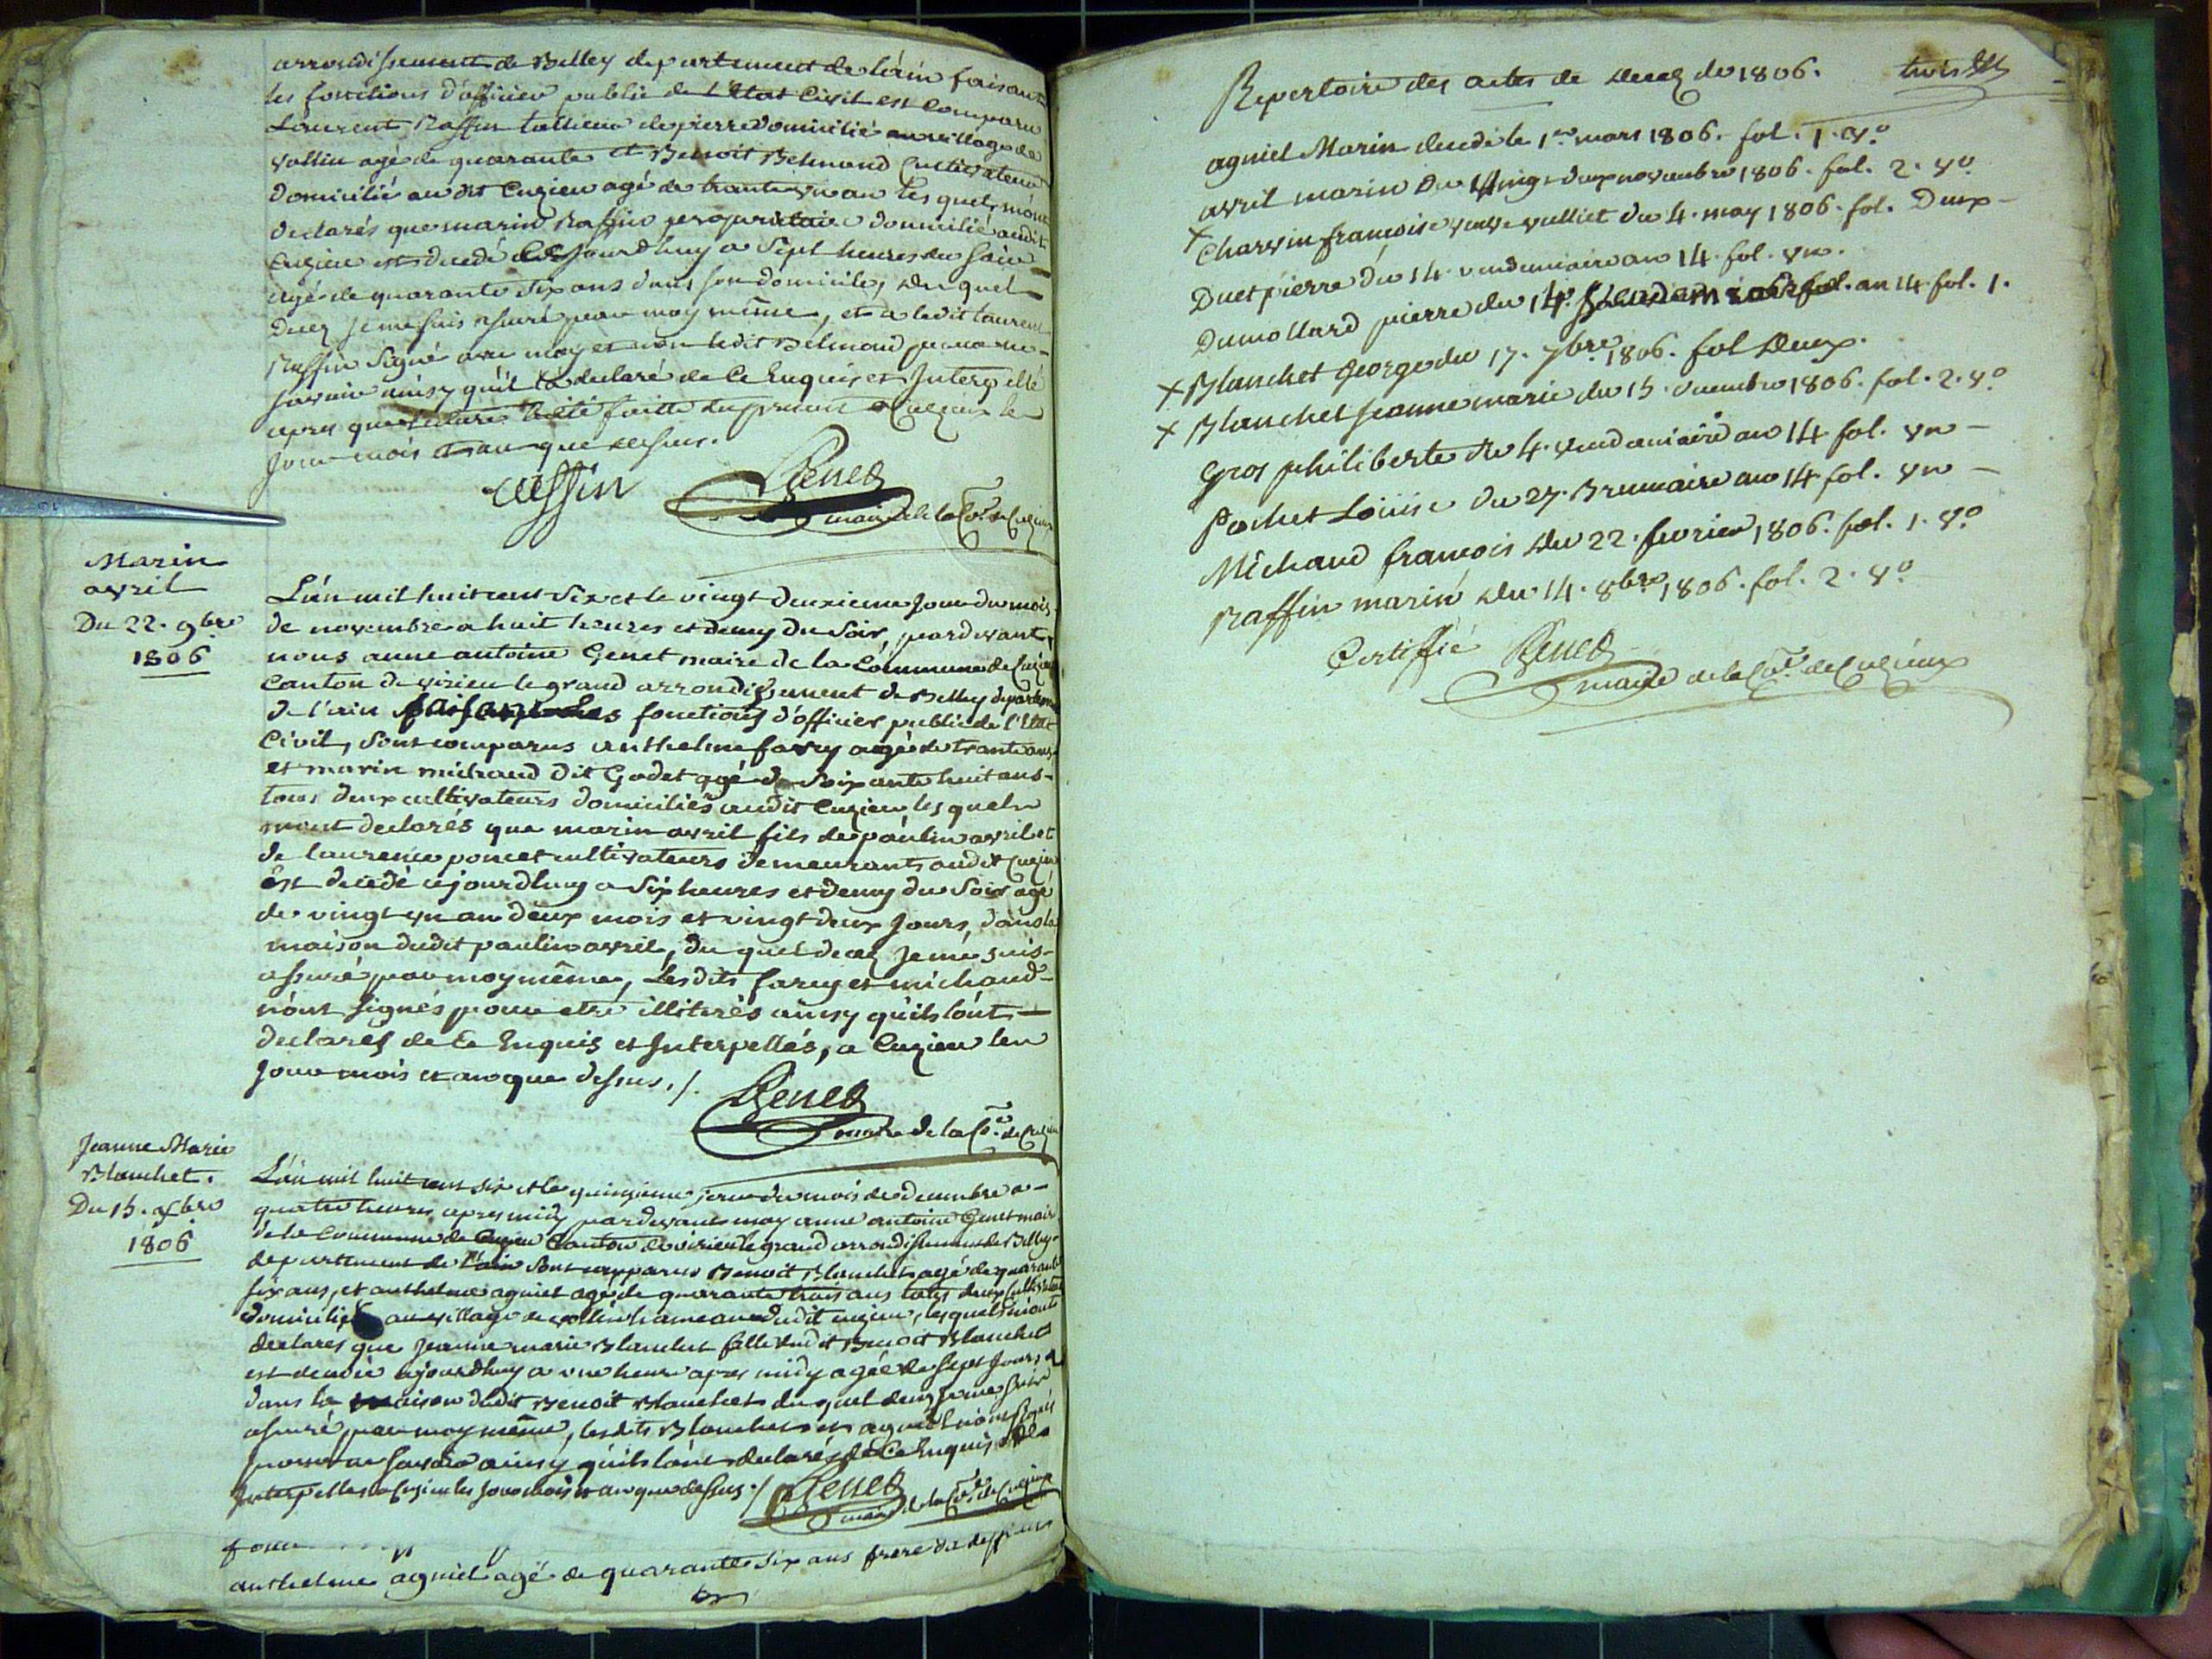 arrondissement de Belley departement de l'ain faisant
les fonctions d'officier public de l'Etat Civil est comparu
Laurent Raffin tallieur de pierre domicilié au village de
vollin agé de quarante et Benoit Belmand Cultivateur
domicilié au dit Cuzieu agé de trante un an les quels m'ont
declarés que marin Raffin propriétaire domicilié audit
Cuzieu est decedé Ce jourd'huy a Sept heures du Soir
agé de quarante six ans dans son domicile, du quel
decez je me suis assuré par moy même, et a ledit Laurent
Raffin Signé avec moy et non ledit Belmand pour ne
savoir ainsy qu'il l'a declaré de Ce Enquis et Interpellé
apres que lecture a été faitte du présent a Cuzieu les
Jour mois et an que dessus.
raffin Genet
maire de la Cne de Cuzieux
Marin
avril
Du 22. 9bre
1806
L'an mil huit cent Six et le vingt deuxieme Jour du mois
de novembre a huit heures et demy du Soir, pardevant
nous anne antoine Genet maire de la Commune de Cuzieu
Canton de virieu le grand arrondissement de Belley departement
de l'ain faisant les fonctions d'officier public de l'Etat
Civil, Sont comparus anthelme favry agé de trante ans
et marin michaud dit Godet agé de Soixante huit ans
tous deux cultivateurs domiciliés audit Cuzieu les quels
m'ont declarés que marin avril fils de paulin avril et
de laurence poncet cultivateurs demeurants audit Cuzieu
est decedé cejourdhuy a Six heures et demy du Soir agé
de vingt un an deux mois et vingt deux Jours, dans la
maison dudit paulin avril, du quel decez Je me suis
assuré par moy même, Lesdits favry et michaud
n'ont signés pour etre illiterés ainsy qu'ils l'ont
declarés de Ce Enquis et Interpellés, a Cuzieu les
Jour mois et an que dessus. /.
Genet
maire de la Cne de Cuzieu
Jeanne Marie
Blanchet.
Du 15. Xbre
1806
L'an mil huit cent six et le quinzieme jour du mois de decembre a
quatre heures apres midy pardevant moy anne antoine Genet maire
de la Commune de Cuzieu Canton de virieu le grand arrondissement de Belley
departement de l'ain Sont comparus Benoit Blanchet agé de quarante
six ans, et anthelme agniel agé de quarante trois ans tous deux Cultivateurs
domiciliés au village de vollin hameau dudit cuzieu, lesquels m'ont
declarés que Jeanne marie Blanchet fille dudit Benoit Blanchet
est decedée cejourdhuy a une heure apres midy agée de sept Jours
dans la maison dudit Benoit Blanchet du quel decez Je me suis
assuré par moy même, lesdits Blanchet et agniel n'ont signés
pour ne savoir ainsy qu'ils l'ont declarés de Ce Enquis et
Interpellés a Cuzieu les Jour mois et an que dessus. / Genet
maire de la Cne de Cuzieux
anthelme agniel agé de quarante six ans frere du
Repertoire des actes de decez de 1806. trois
agniel Marin decedé le 1er mars 1806. fol. 1. vo
avril marin Du vingt deux novembre 1806. fol. 2. vo
x Charvin francoise veuve vulliet du 4. may 1806. fol. Deux
Duet pierre du 14. vendemiaire an 14. fol. un.
Dumollard pierre du 14. vendemiaire an 14 fol. 1.
x Blanchet George du 17. 7bre 1806. fol Deux.
x Blanchet Jeanne marie du 15. decembre 1806. fol. 2. vo
Gros philiberte du 4. vendemiaire an 14 fol. un
Pochet Louise du 27. Brumaire an 14. fol. un
Michaud francois du 22. fevrier 1806. fol. 1. vo
Raffin marin du 14. 8bre 1806. fol. 2. vo
Certiffié Genet
maire de la Cne de Cuzieux